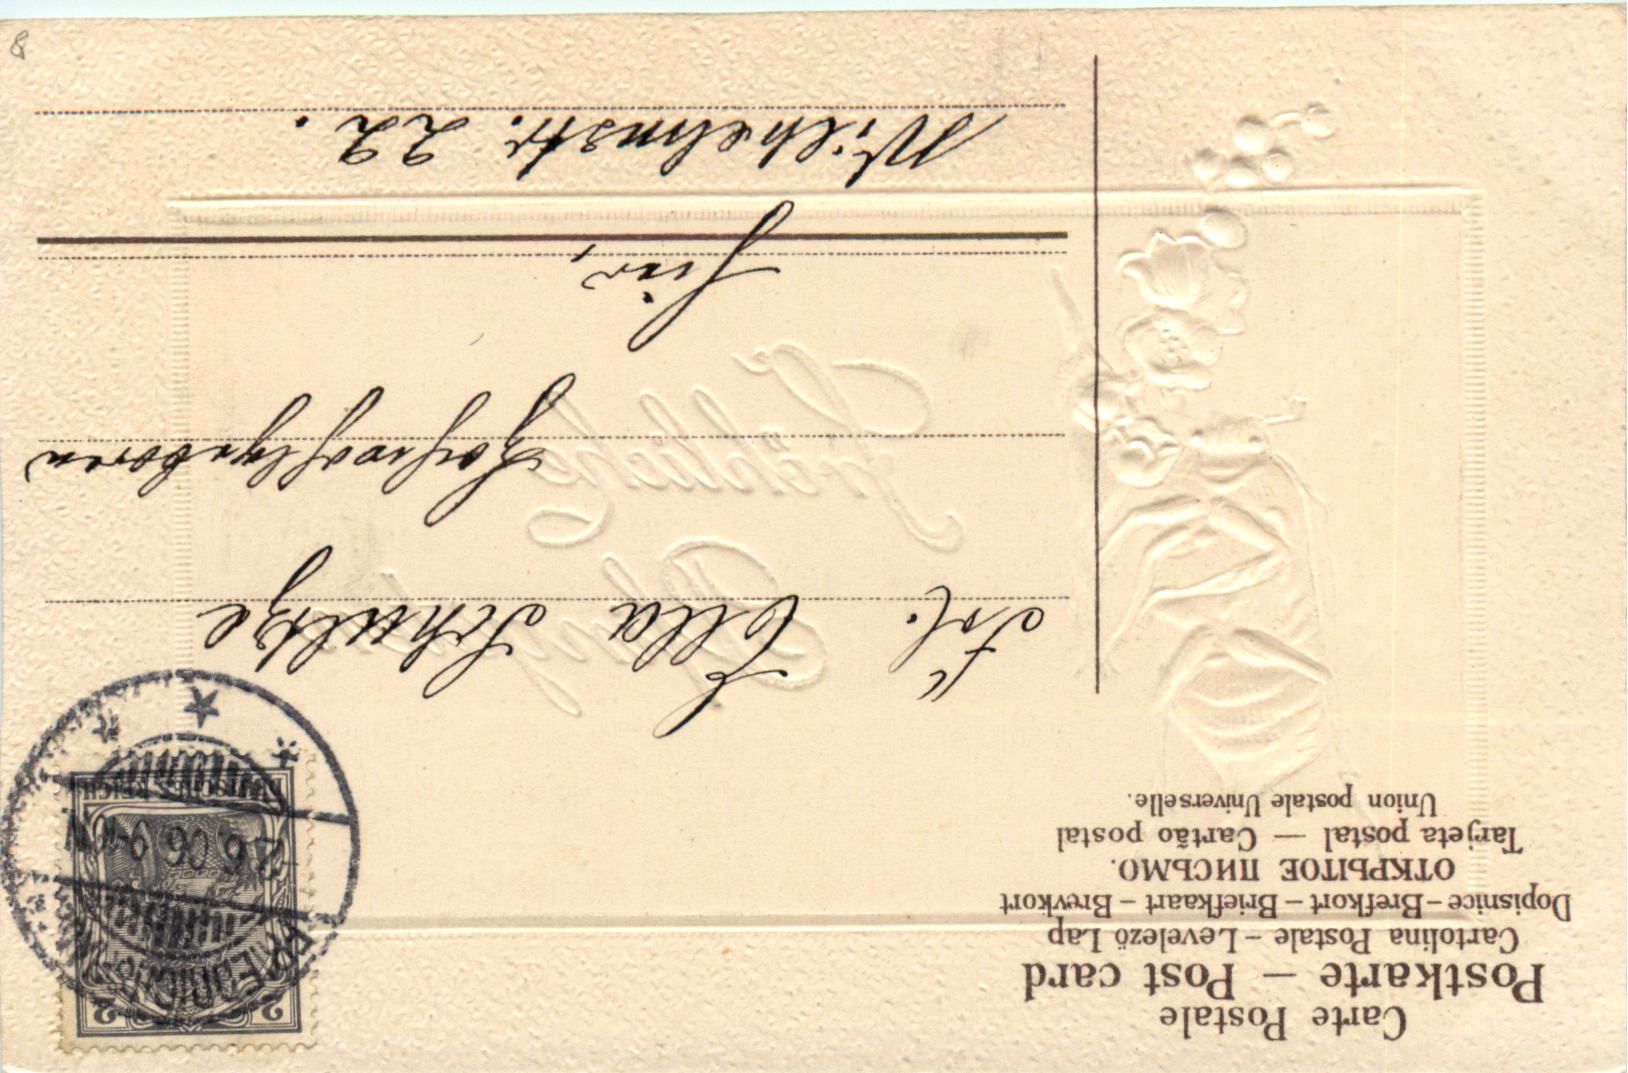 Carte Postale
Postkarte – Post card
Cartolina Postale – Levelező Lap
Dopisnice – Brefkort – Briefkaart – Brevkort
ОТКРЫТОЕ ПИСЬМО.
Tarjeta postal — Cartão postal
Union postale Universelle.
2 2
DEUTSCHES REICH
2.6.06. 9-10V
Frl. Ella Schultze
Hochwohlgeboren
hier,
Wilhelmstr. 22.
Fröhliche
Pfingsten
8